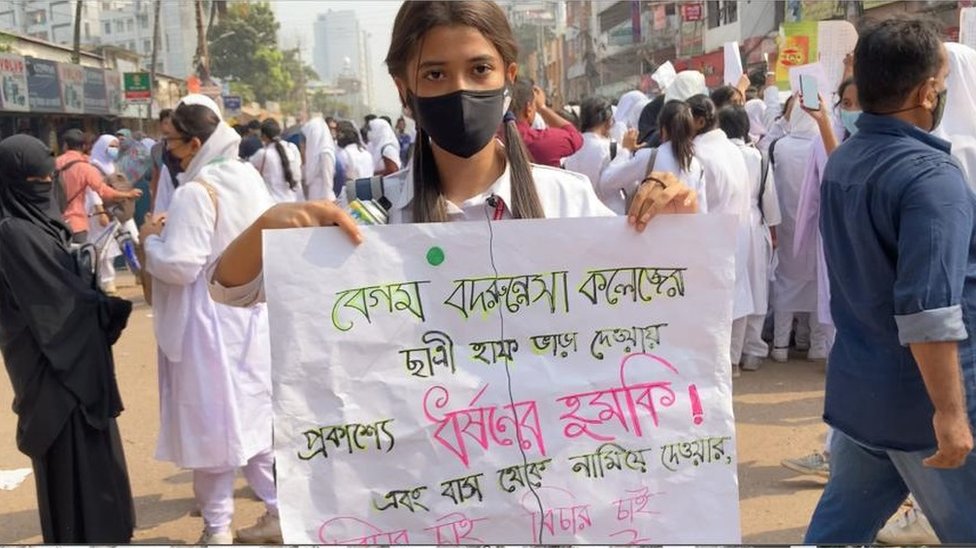 বেগম বদরুন্নেসা কলেজের
ছাত্রী হাফ ভাড়া দেওয়ায়
প্রকাশ্যে ধর্ষণের হুমকি!
এবং বাস থেকে নামিয়ে দেওয়ার,
বিচার চাই বিচার চাই